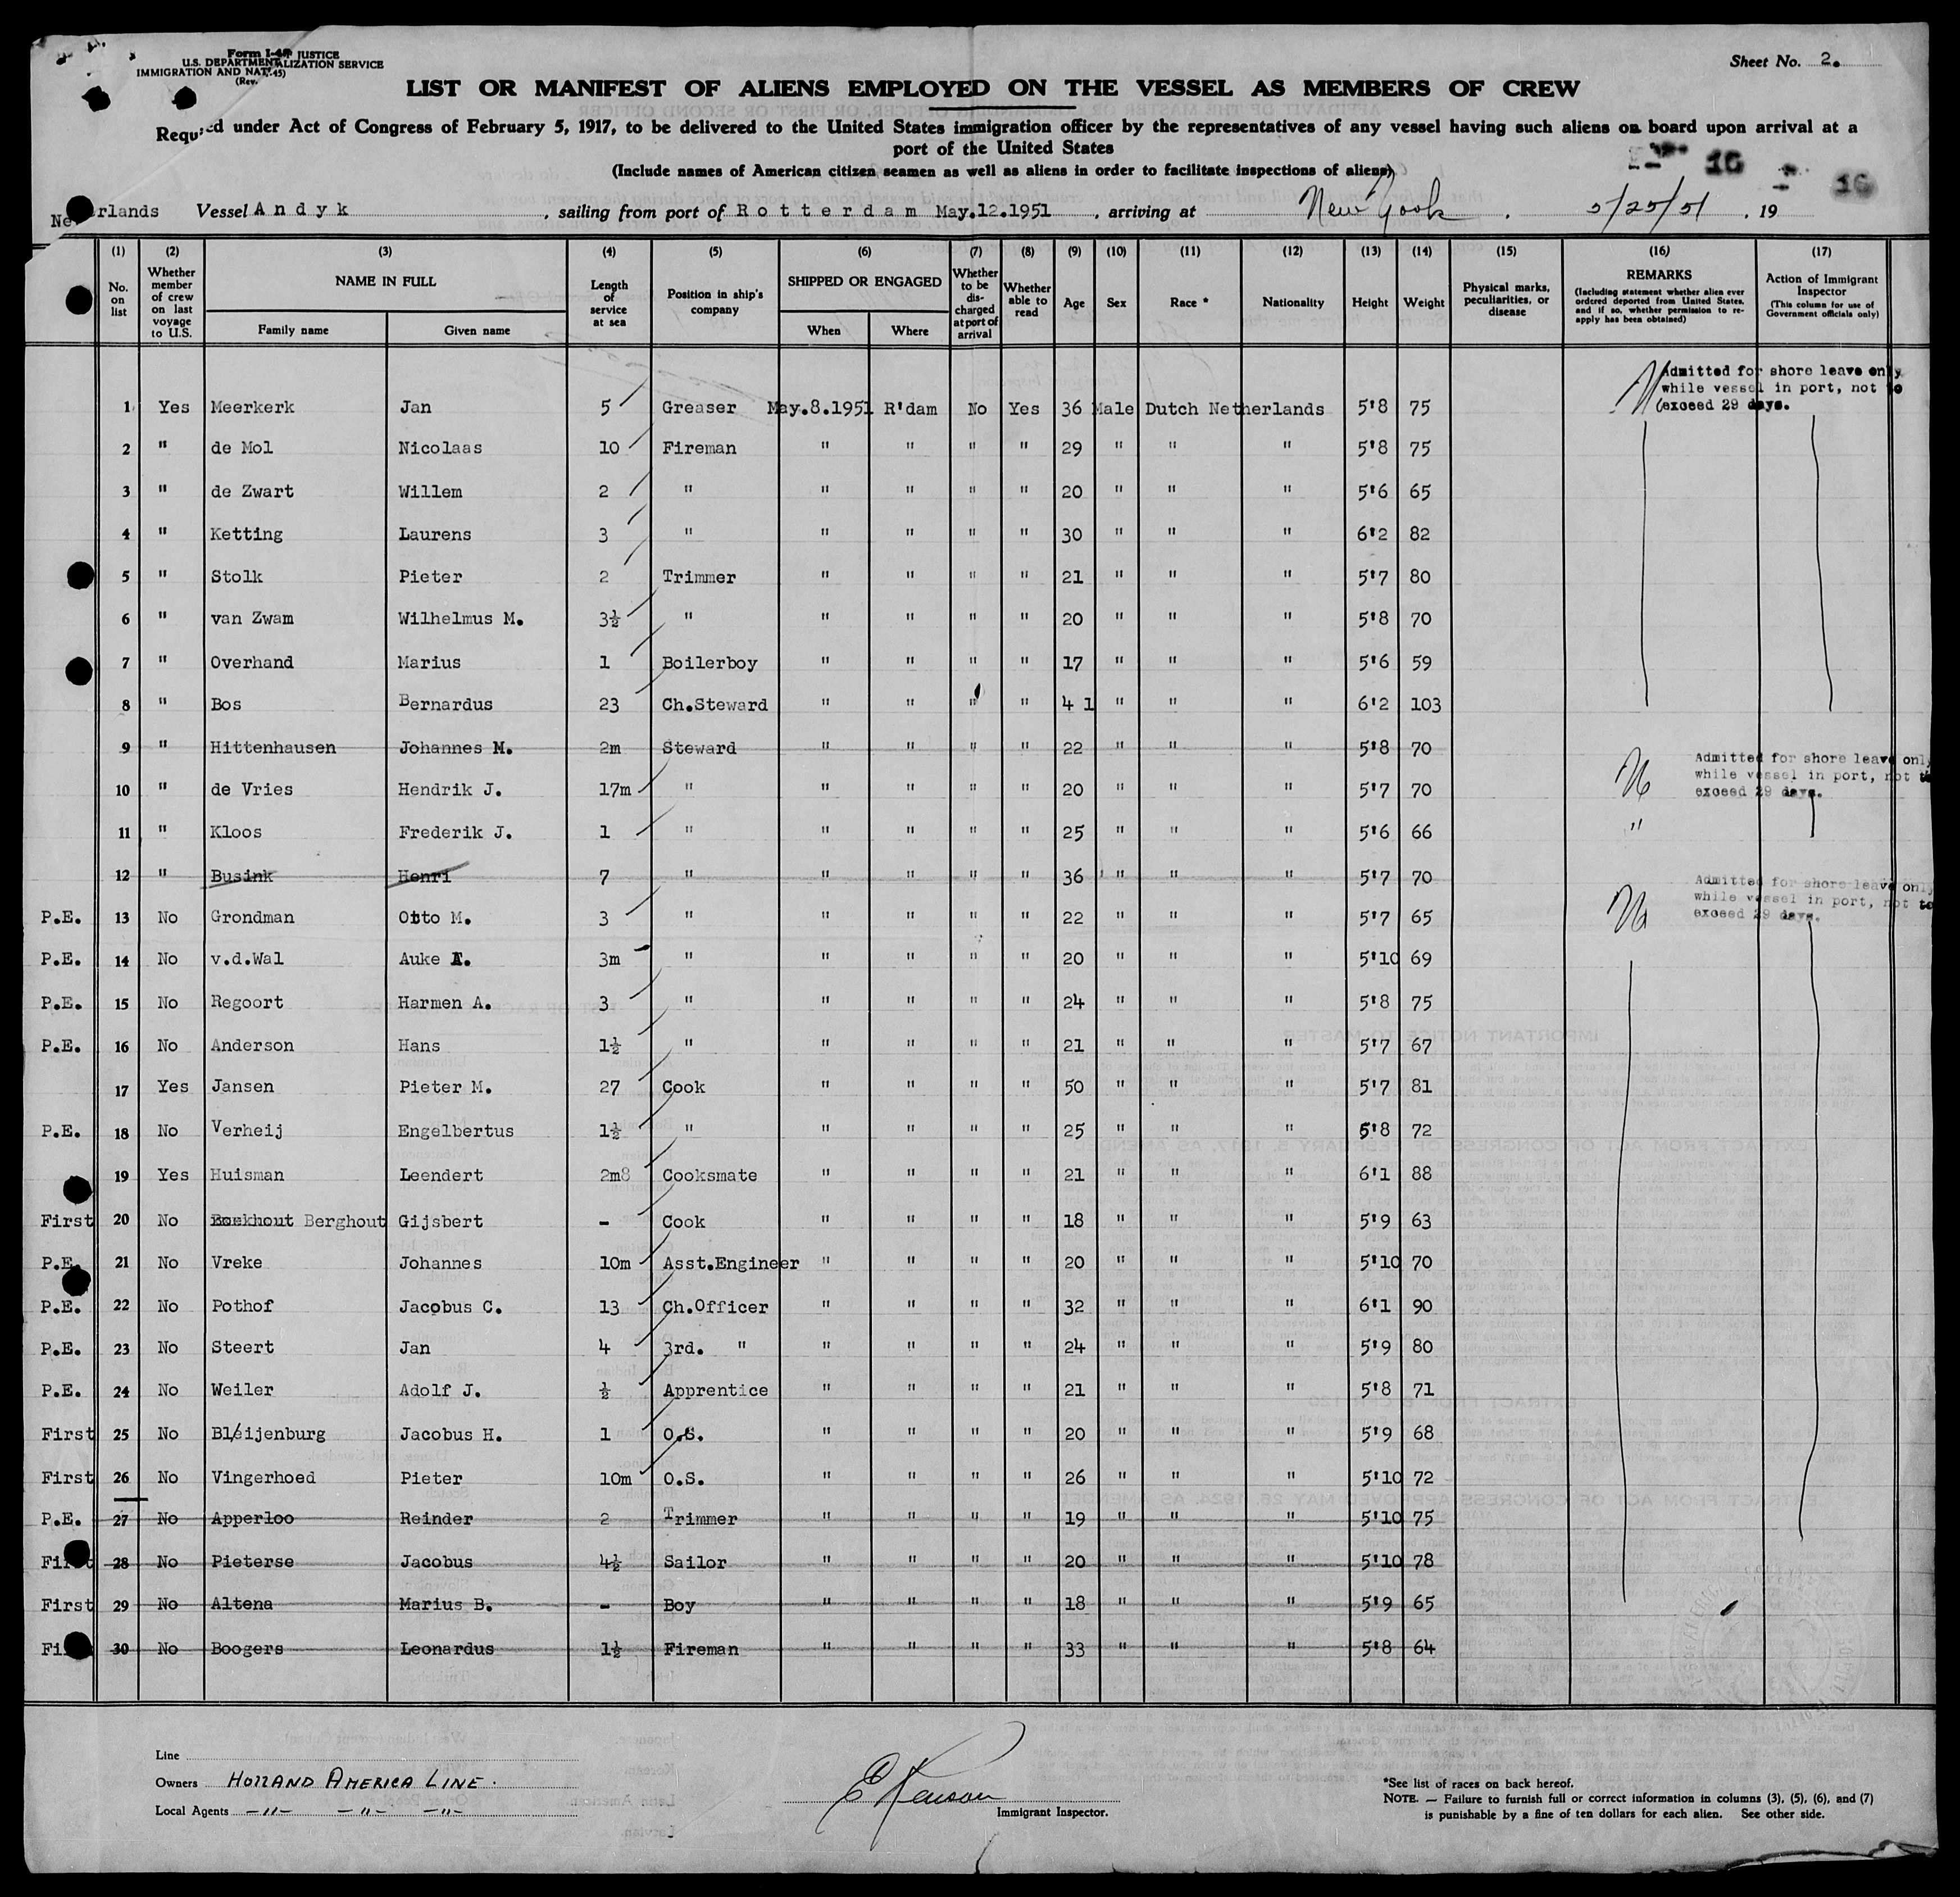 Form I-4
U.S. DEPARTMENT JUSTICE
IMMIGRATION AND NAT ALIZATION SERVICE
(Rev. 45)
Sheet No. 2.
LIST OR MANIFEST OF ALIENS EMPLOYED ON THE VESSEL AS MEMBERS OF CREW
Required under Act of Congress of February 5, 1917, to be delivered to the United States immigration officer by the representatives of any vessel having such aliens on board upon arrival at a
port of the United States
(Include names of American citizen seamen as well as aliens in order to facilitate inspections of aliens)
16 16
Netherlands Vessel Andyk , sailing from port of Rotterdam May.12.1951 , arriving at New York , 5/25/51 , 19
(1) (2) (3) (4) (5) (6) (7) (8) (9) (10) (11) (12) (13) (14) (15) (16) (17)
No. on list
Whether member of crew on last voyage to U.S.
NAME IN FULL
Family name Given name
Length of service at sea
Position in ship's company
SHIPPED OR ENGAGED
When Where
Whether to be discharged at port of arrival
Whether able to read
Age Sex Race * Nationality Height Weight
Physical marks, peculiarities, or disease
REMARKS
(Including statement whether alien ever ordered deported from United States, and if so, whether permission to re-apply has been obtained)
Action of Immigrant Inspector
(This column for use of Government officials only)
Admitted for shore leave only
while vessel in port, not to
exceed 29 days.
1 Yes Meerkerk Jan 5 Greaser May.8.1951 R'dam No Yes 36 Male Dutch Netherlands 5'8 75
2 " de Mol Nicolaas 10 Fireman " " " " 29 " " " 5'8 75
3 " de Zwart Willem 2 " " " " " 20 " " " 5'6 65
4 " Ketting Laurens 3 " " " " " 30 " " " 6'2 82
5 " Stolk Pieter 2 Trimmer " " " " 21 " " " 5'7 80
6 " van Zwam Wilhelmus M. 3½ " " " " " 20 " " " 5'8 70
7 " Overhand Marius 1 Boilerboy " " " " 17 " " " 5'6 59
8 " Bos Bernardus 23 Ch.Steward " " " " 4 1 " " " 6'2 103
9 " Hittenhausen Johannes M. 2m Steward " " " " 22 " " " 5'8 70
Admitted for shore leave only
while vessel in port, not to
exceed 29 days.
10 " de Vries Hendrik J. 17m " " " " " 20 " " " 5'7 70
11 " Kloos Frederik J. 1 " " " " " 25 " " " 5'6 66 "
12 " Busink Henri 7 " " " " " 36 " " " 5'7 70
Admitted for shore leave only
while vessel in port, not to
exceed 29 days.
P.E. 13 No Grondman Otto M. 3 " " " " " 22 " " " 5'7 65
P.E. 14 No v.d.Wal Auke T. 3m " " " " " 20 " " " 5'10 69
P.E. 15 No Regoort Harmen A. 3 " " " " " 24 " " " 5'8 75
P.E. 16 No Anderson Hans 1½ " " " " " 21 " " " 5'7 67
17 Yes Jansen Pieter M. 27 Cook " " " " 50 " " " 5'7 81
P.E. 18 No Verheij Engelbertus 1½ " " " " " 25 " " " 5'8 72
19 Yes Huisman Leendert 2m8 Cooksmate " " " " 21 " " " 6'1 88
First 20 No Berghout Gijsbert - Cook " " " " 18 " " " 5'9 63
P.E. 21 No Vreke Johannes 10m Asst.Engineer " " " " 20 " " " 5'10 70
P.E. 22 No Pothof Jacobus C. 13 Ch.Officer " " " " 32 " " " 6'1 90
P.E. 23 No Steert Jan 4 3rd. " " " " " 24 " " " 5'9 80
P.E. 24 No Weiler Adolf J. ½ Apprentice " " " " 21 " " " 5'8 71
First 25 No Bleijenburg Jacobus H. 1 O.S. " " " " 20 " " " 5'9 68
First 26 No Vingerhoed Pieter 10m O.S. " " " " 26 " " " 5'10 72
P.E. 27 No Apperloo Reinder 2 Trimmer " " " " 19 " " " 5'10 75
First 28 No Pieterse Jacobus 4½ Sailor " " " " 20 " " " 5'10 78
First 29 No Altena Marius B. - Boy " " " " 18 " " " 5'9 65
First 30 No Boogers Leonardus 1½ Fireman " " " " 33 " " " 5'8 64
Line
Owners HOLLAND AMERICA LINE.
Local Agents -"- -"- -"-
Immigrant Inspector.
*See list of races on back hereof.
NOTE. — Failure to furnish full or correct information in columns (3), (5), (6), and (7)
is punishable by a fine of ten dollars for each alien. See other side.